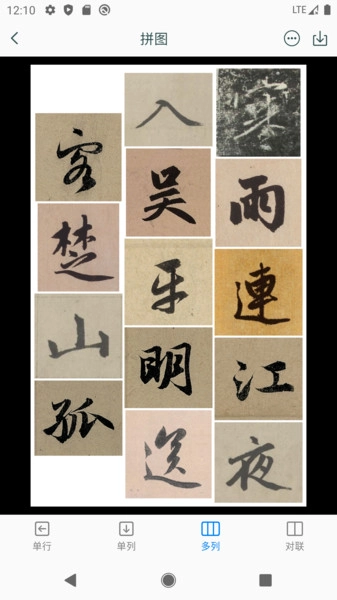 12:10
LTE
拼图
寒雨連江夜
入吴平明送
客楚山孤
单行
单列
多列
对联